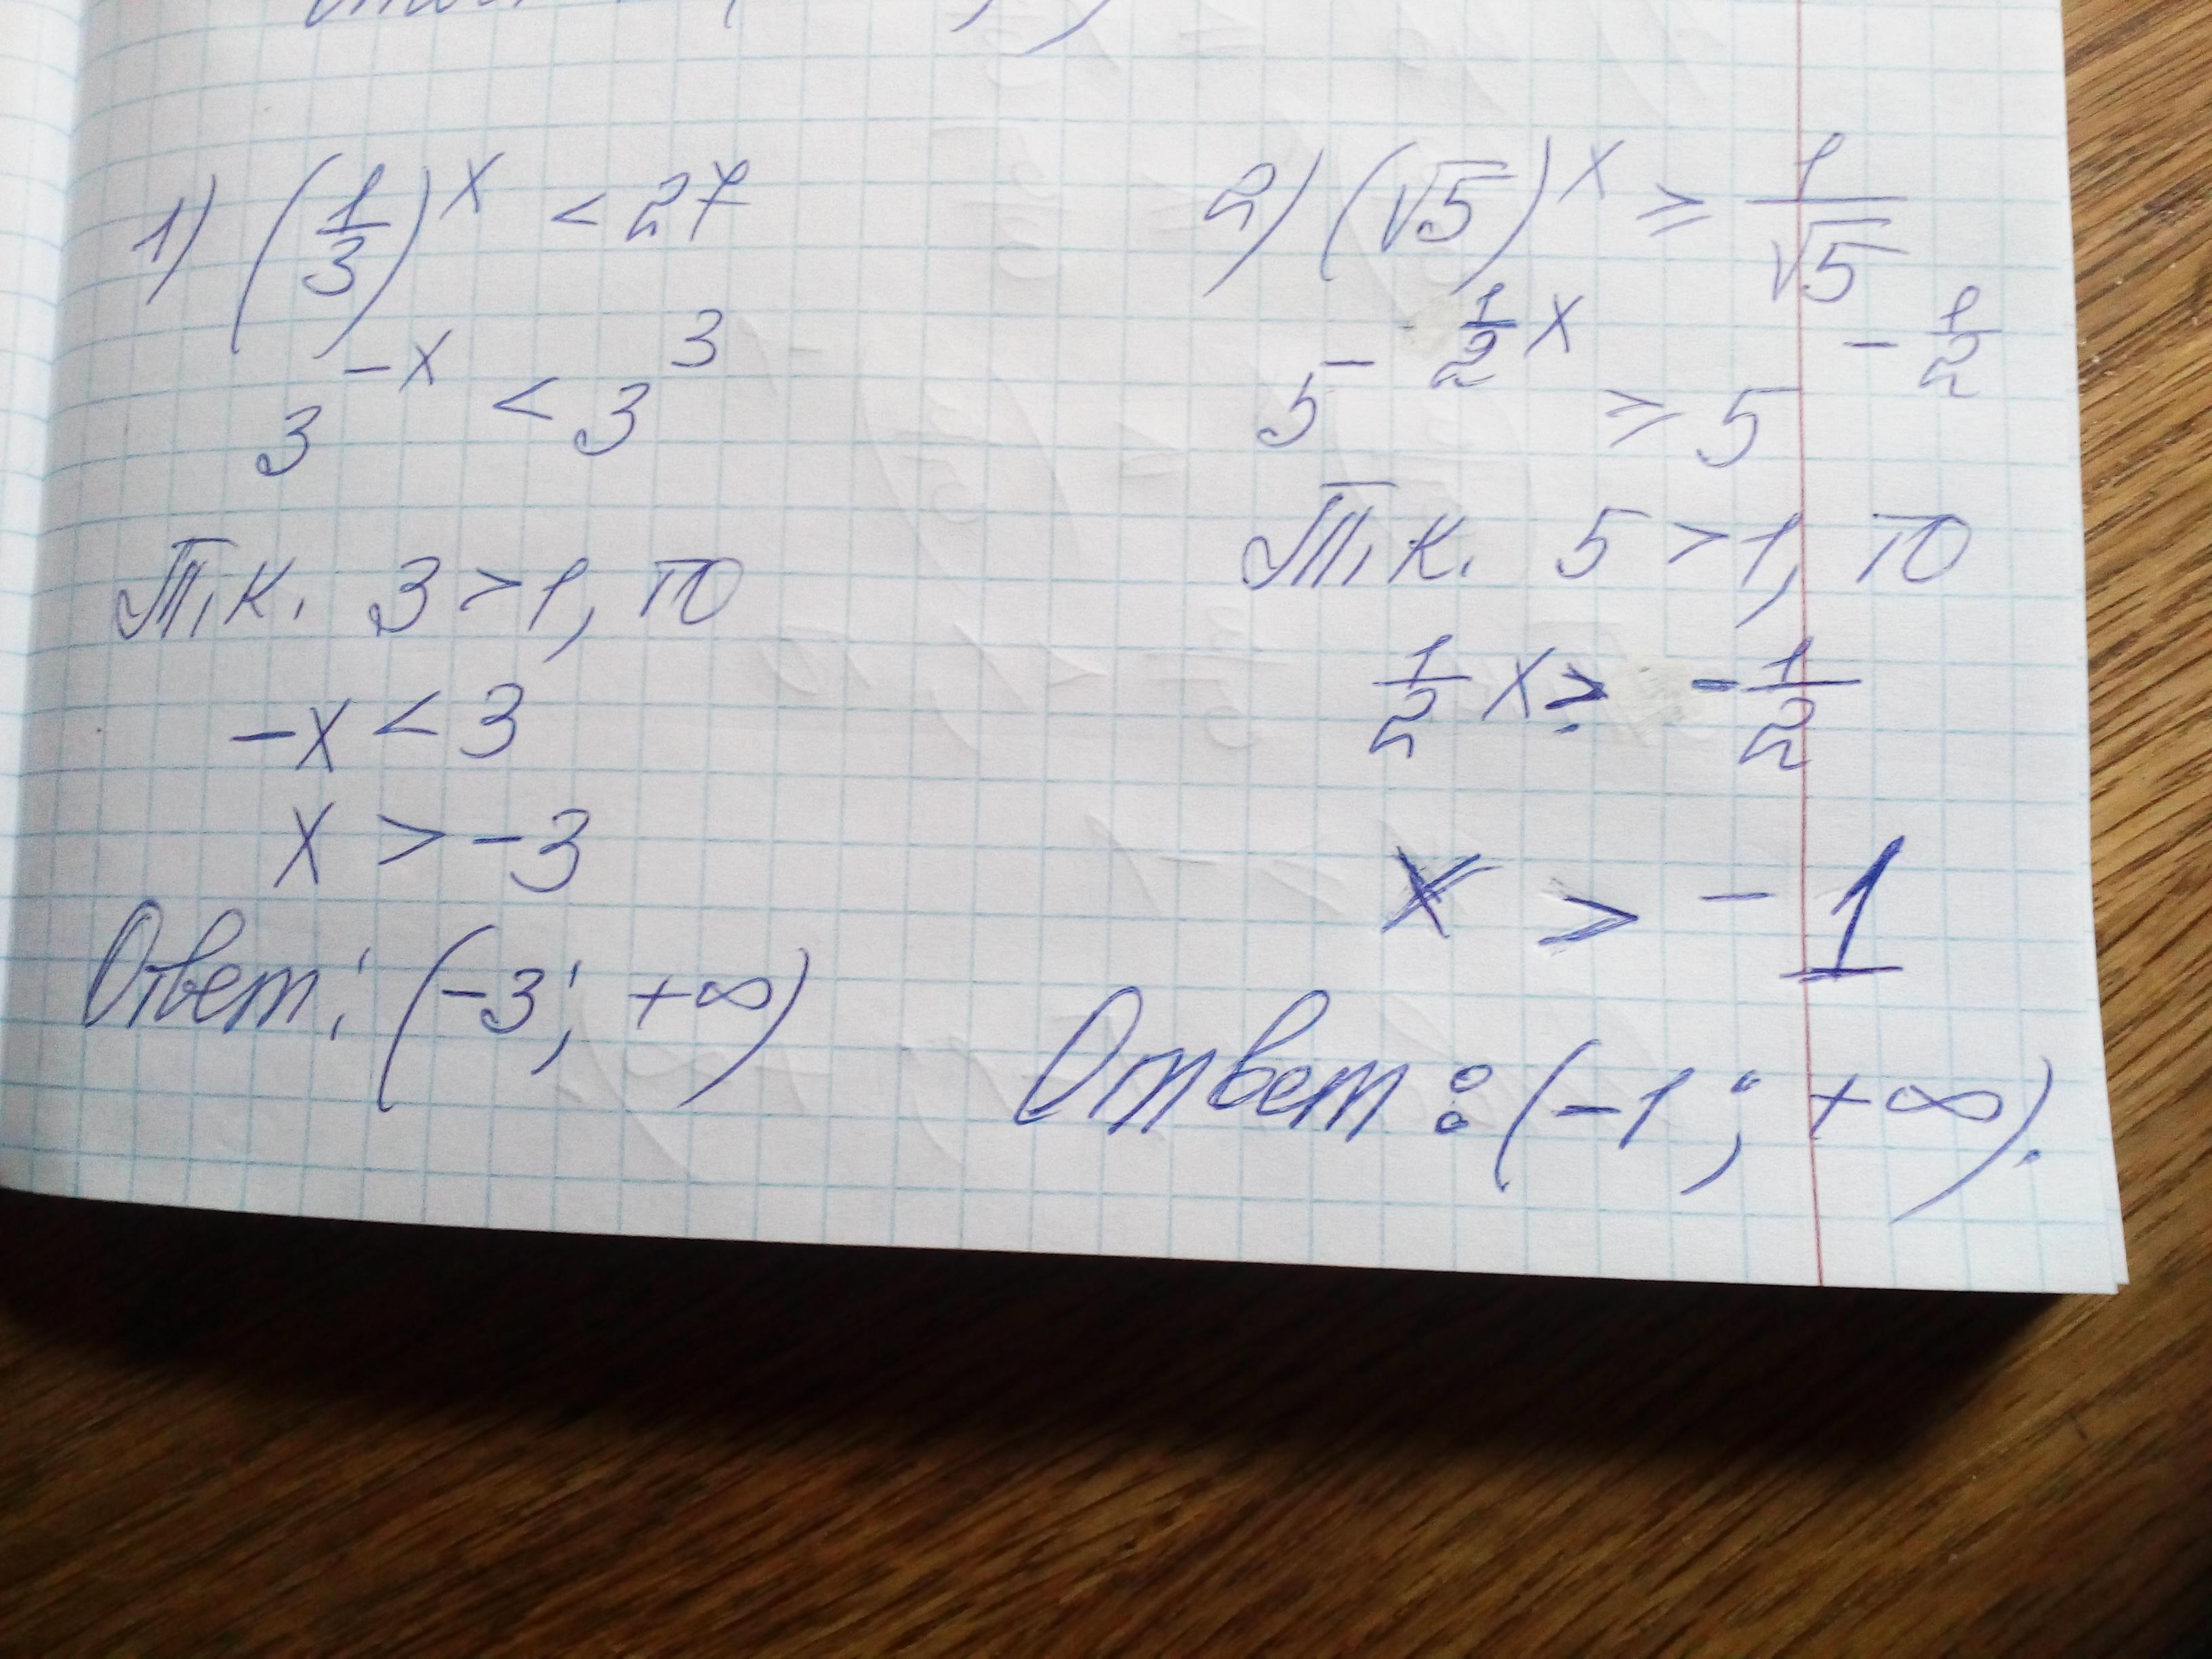 1) (1/3)^x < 27
3^-x < 3^3
Т.к. 3 > 1, то
-x < 3
x > -3
Ответ: (-3; +∞)
2) (√5)^x ≥ 1/√5
5^- 1/2 x ≥ 5^- 1/2
Т.к. 5 > 1, то
1/2 x ≥ - 1/2
x > - 1
Ответ: (-1; +∞).